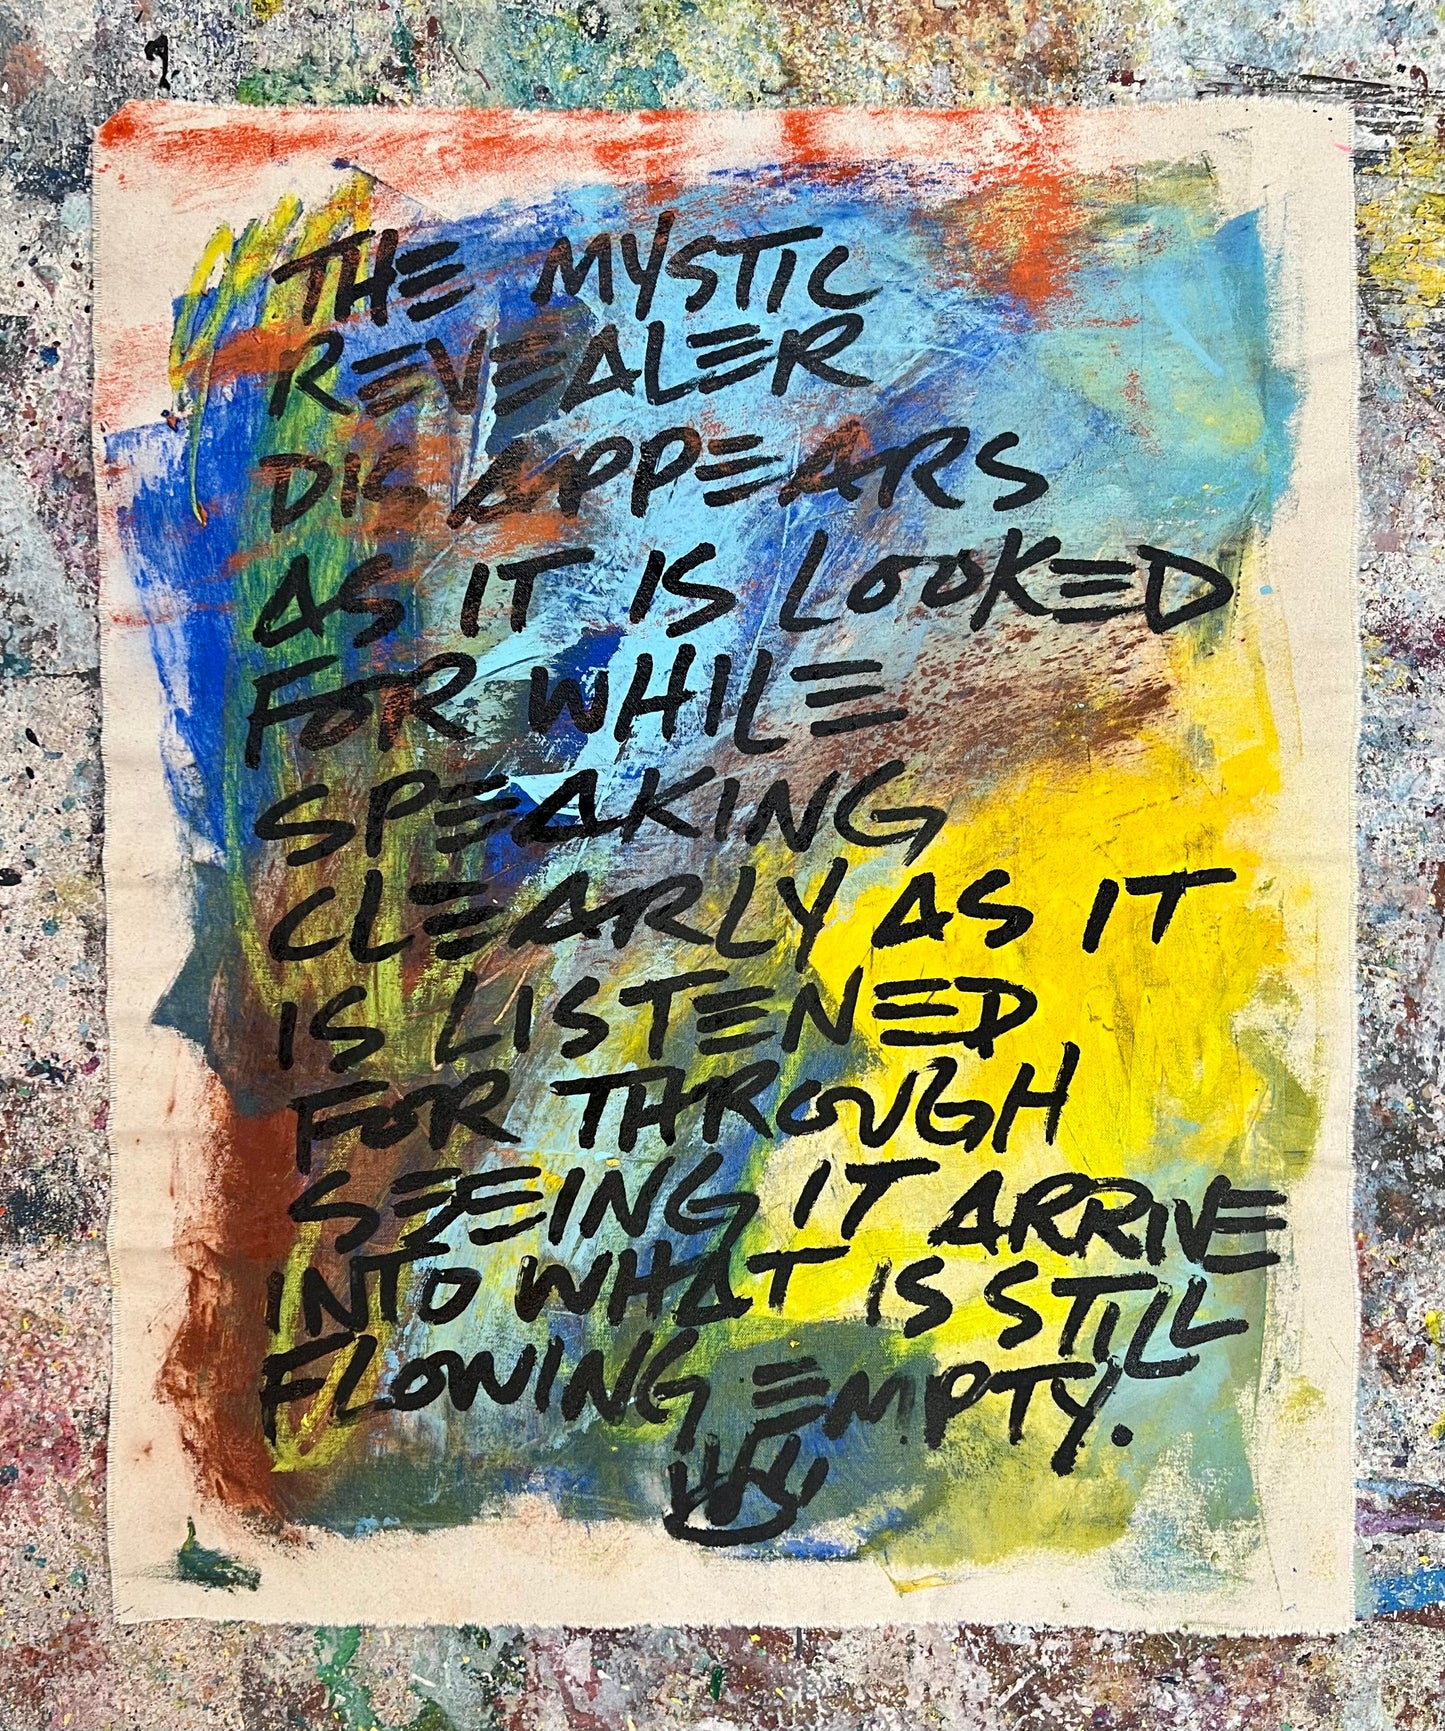 THE MYSTIC
REVEALER
DISAPPEARS
AS IT IS LOOKED
FOR WHILE
SPEAKING
CLEARLY AS IT
IS LISTENED
FOR THROUGH
SEEING IT ARRIVE
INTO WHAT IS STILL
FLOWING EMPTY.